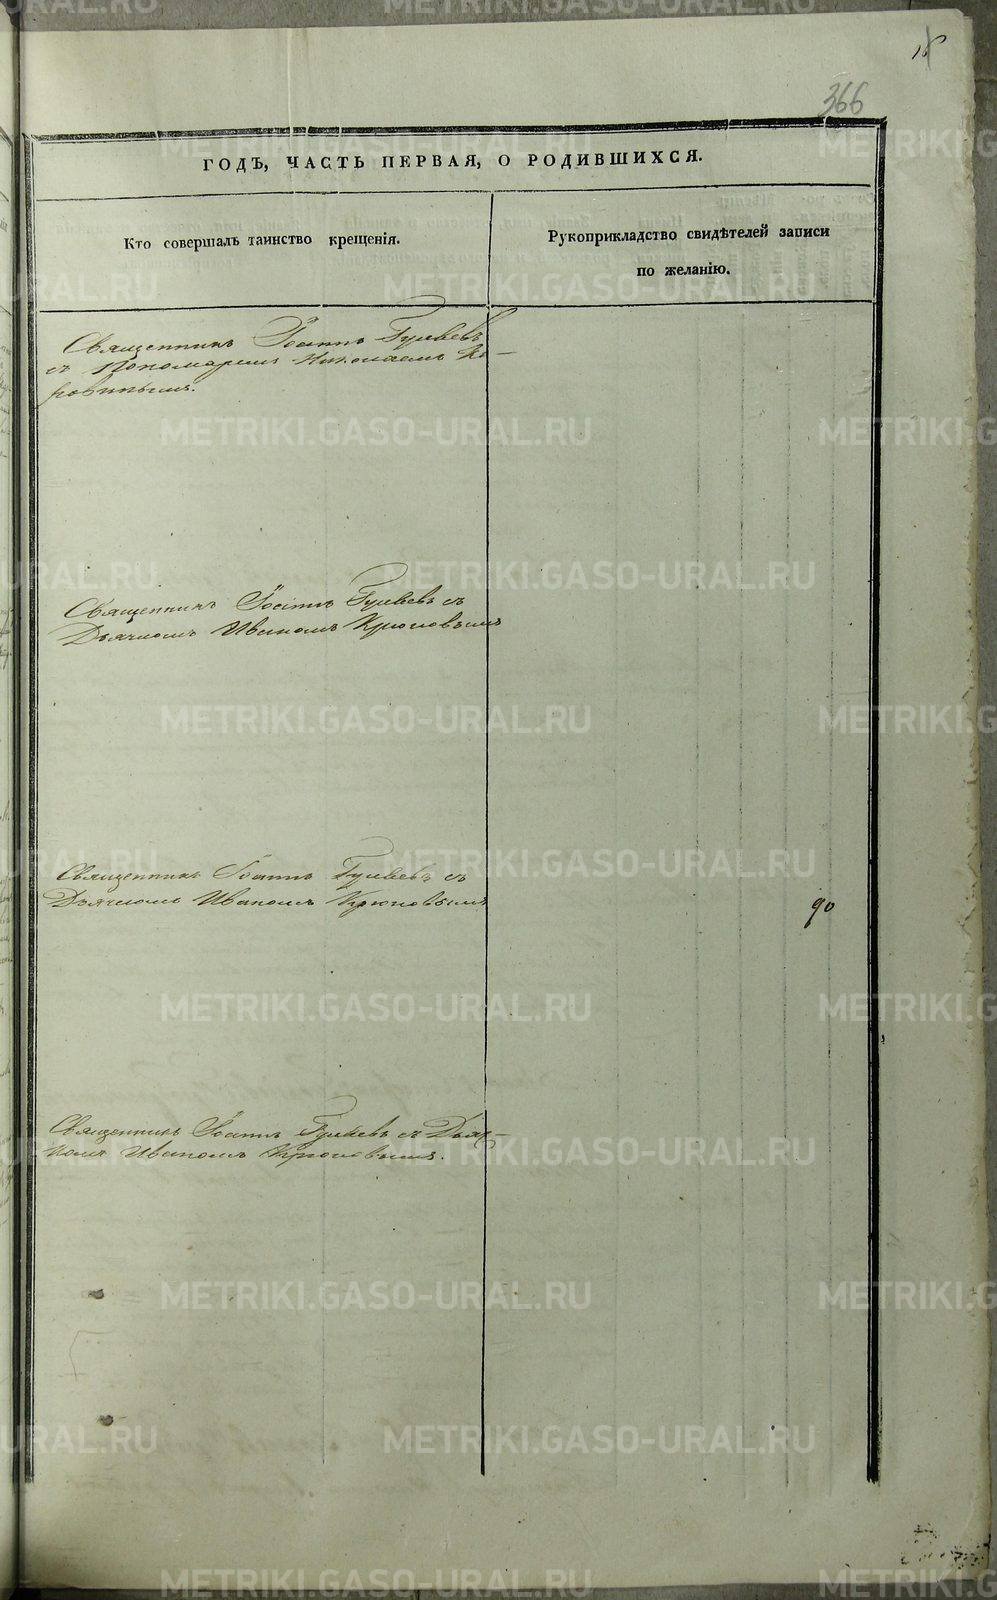 366
ГОДЪ, ЧАСТЬ ПЕРВАЯ, О РОДИВШИХСЯ.
Кто совершалъ таинство крещенія.
Рукоприкладство свидѣтелей записи
по желанію.
Священникъ Іоаннъ Гуляевъ
съ Пономаремъ Николаемъ Ко-
ровинымъ.
Священникъ Іоаннъ Гуляевъ съ
Дьячкомъ Иваномъ Крюковымъ
Священникъ Іоаннъ Гуляевъ съ
Дьячкомъ Иваномъ Крюковымъ
90
Священникъ Іоаннъ Гуляевъ съ Дьяч-
комъ Иваномъ Крюковымъ.
METRIKI.GASO-URAL.RU